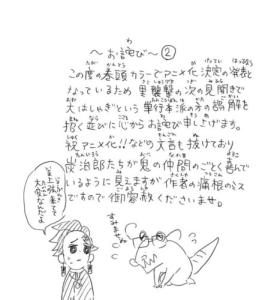 ～お詫び～②
この度の巻頭カラーでアニメ化決定の発表と
なっているため 里襲撃の次の見開きで
大はしゃぎという単行本派の方の誤解を
招く並びに心からお詫び申し上げます。
祝アニメ化!!などの文言も抜けており
炭治郎たちが鬼の仲間のごとく喜んで
いるように見えますが 作者の痛恨のミス
ですので御容赦くださいませ。
すみません